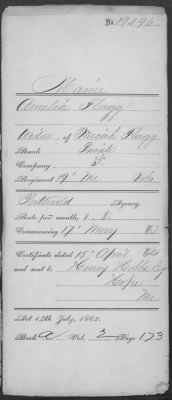 No. 19,294
Maine
Amelia Flagg
Widow of Micah Flagg
Rank Private
Company
Regiment 19" Me Vols
Portland Agency.
Rate per month, $ 8.
Commencing 17" May 63.
Certificate dated 15" April 64
and sent to Henry Hobbs
Hope
Me
Act 14th July, 1862.
Book A Vol. 3 Page 173